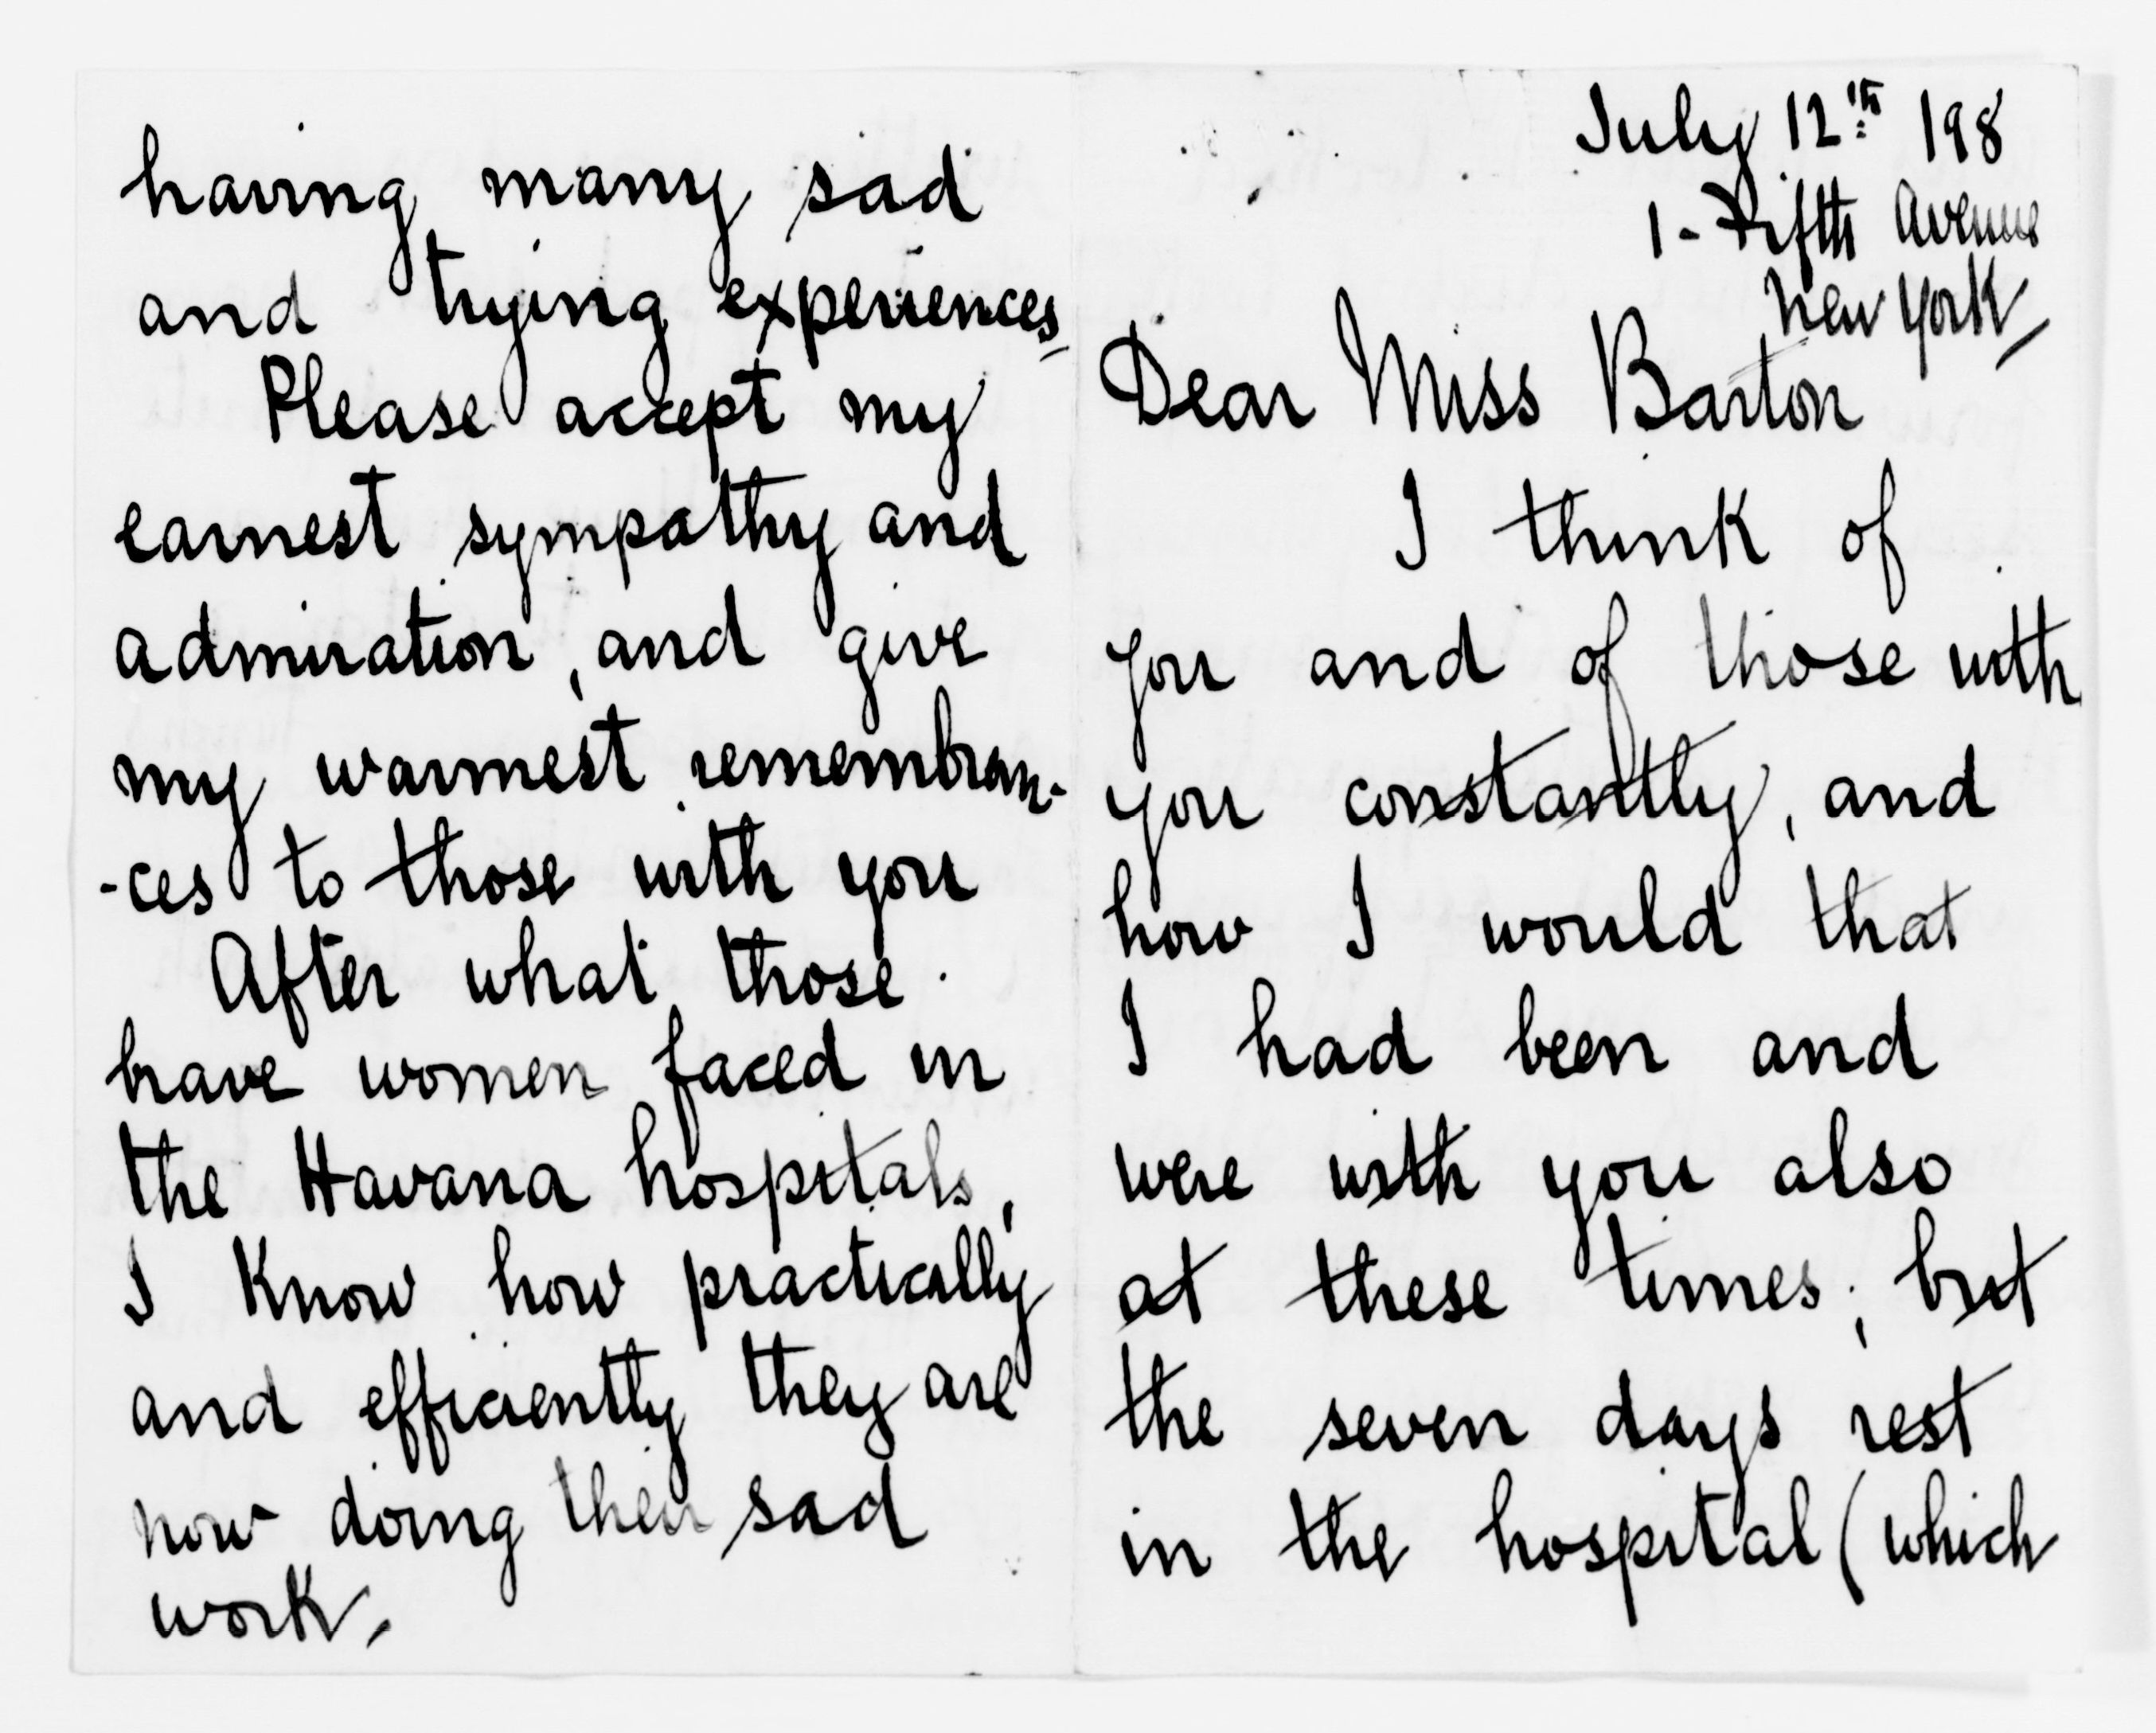 July 12th 198
1 - Fifth Avenue
New York
Dear Miss Barton
I think of
you and of those with
you constantly, and
how I would that
I had been and
were with you also
at these times; but
the seven days rest
in the hospital (which
having many sad
and trying experiences
Please accept my
earnest sympathy and
admiration, and give
my warmest remembran-
-ces to those with you
After what those
brave women faced in
the Havana hospitals,
I know how practically
and efficiently they are
now doing their sad
work.